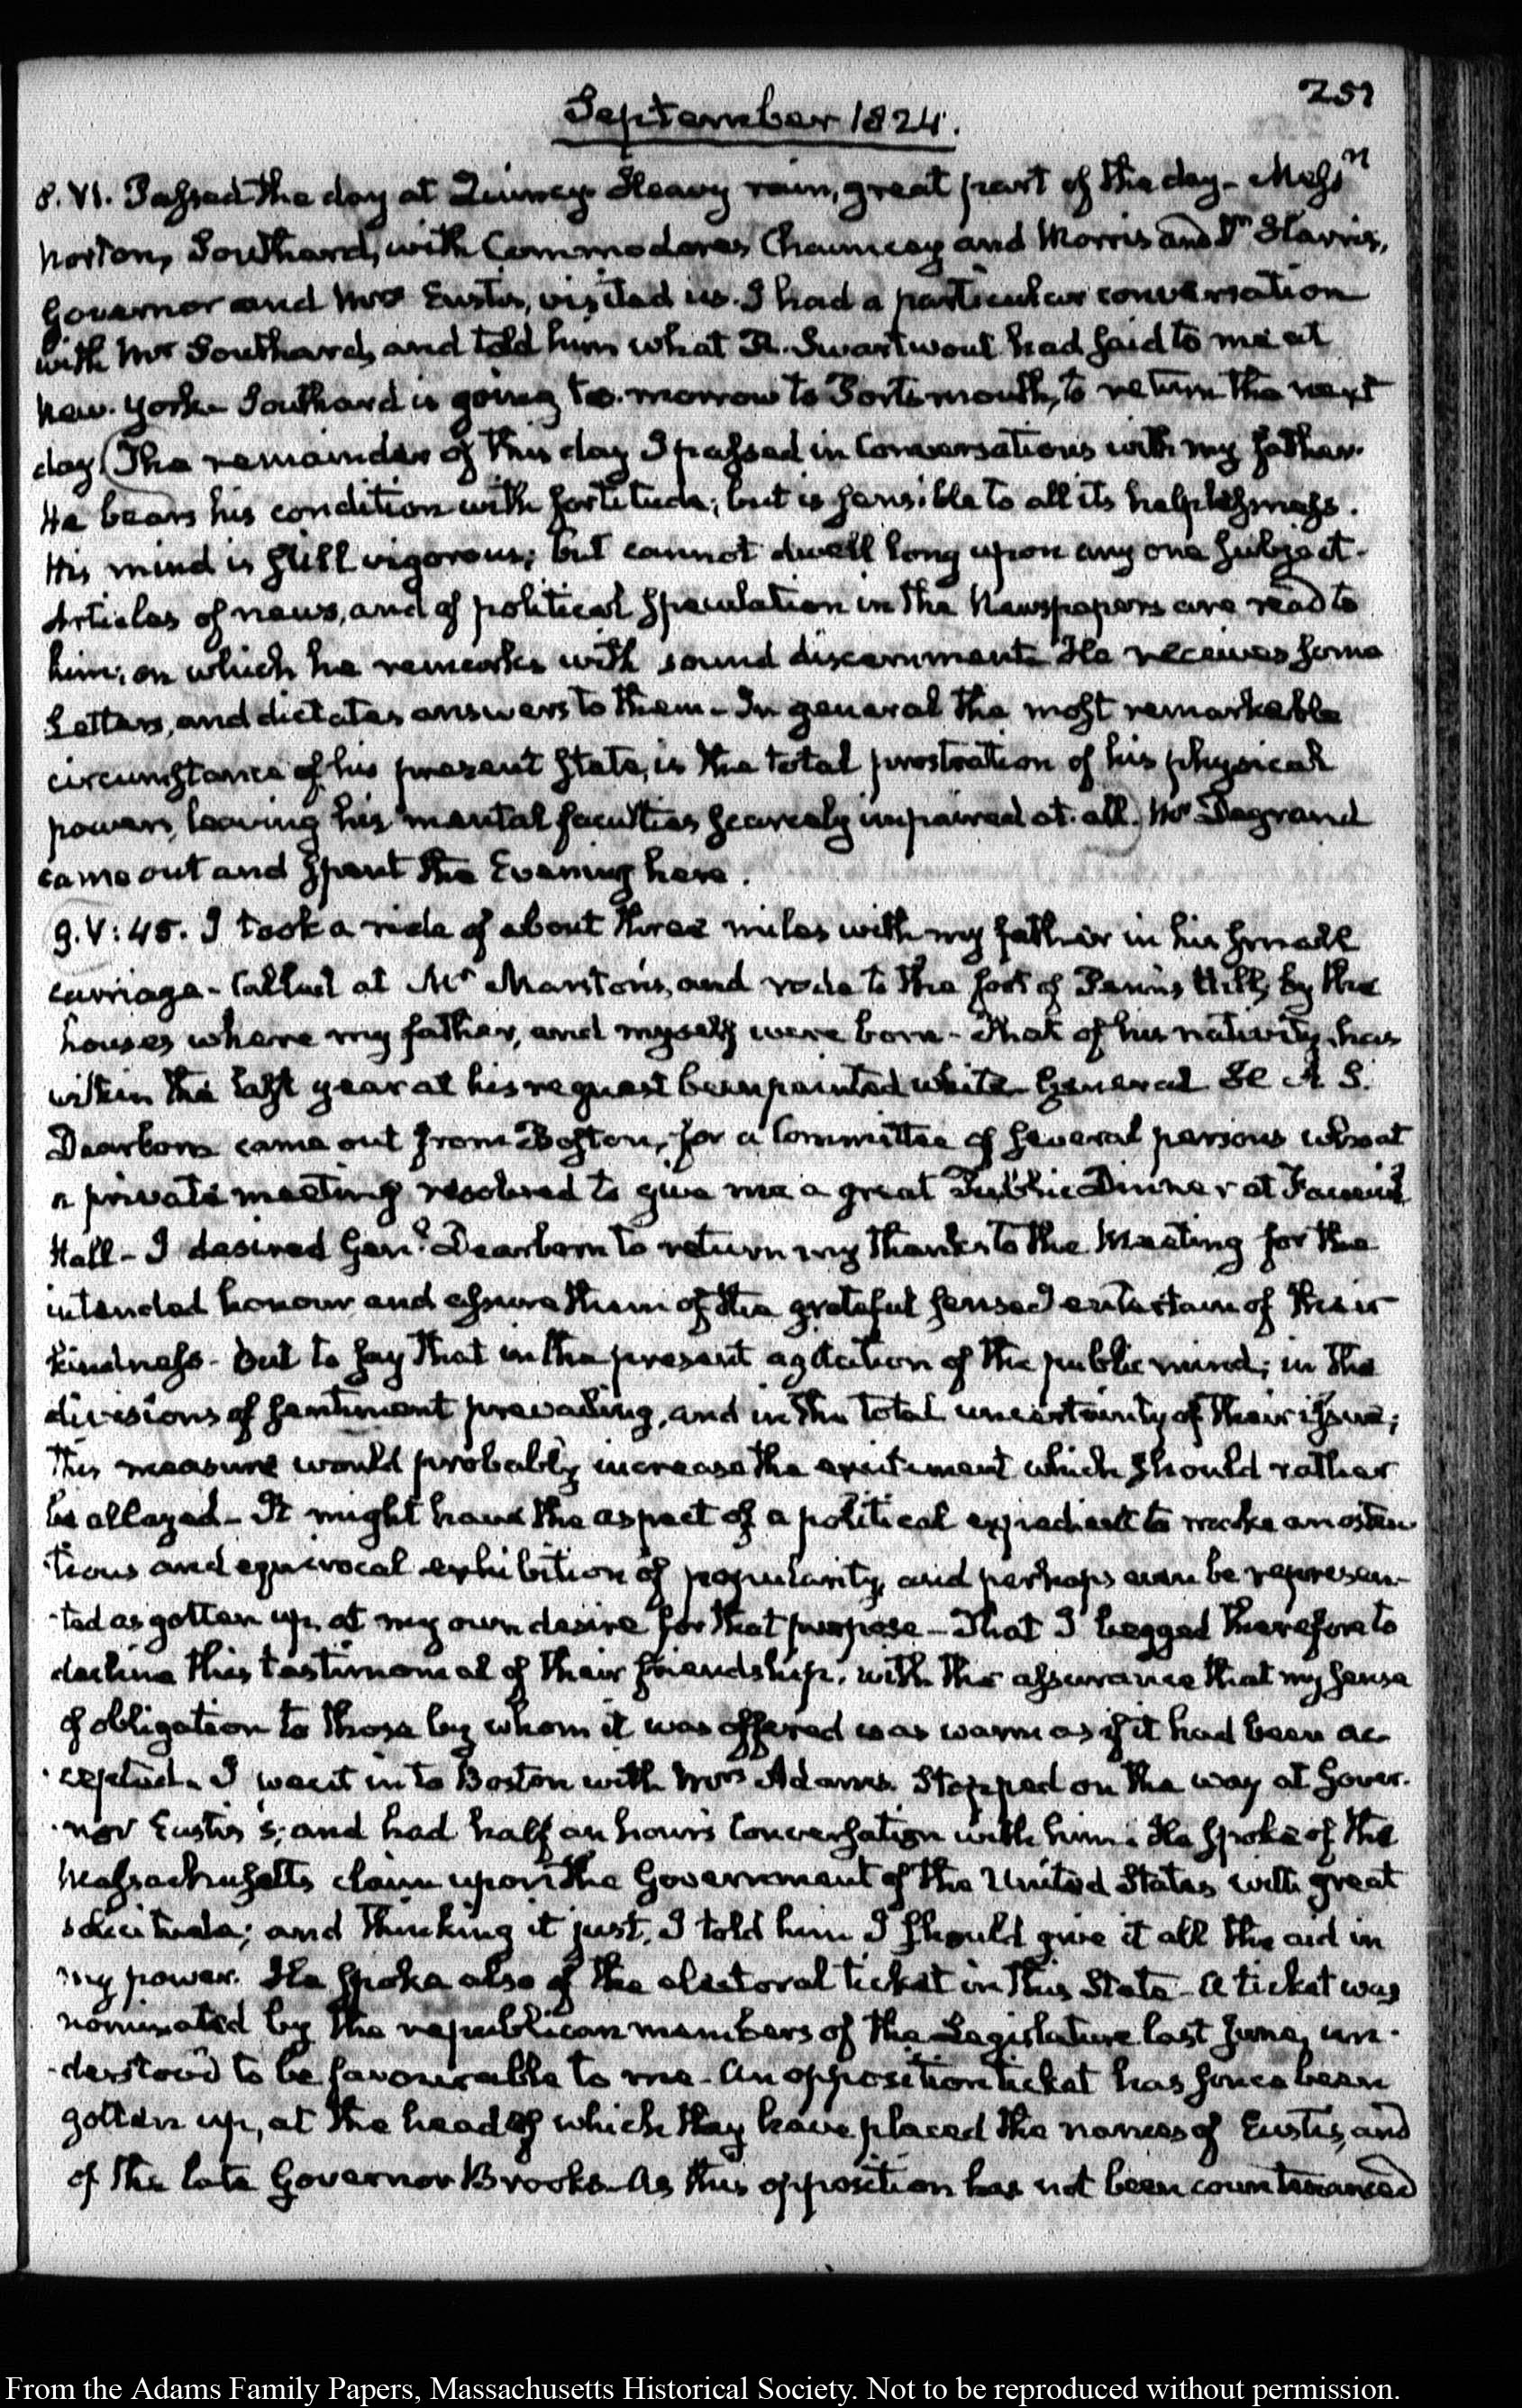 251
September 1824.
8. VI. Passed the day at Quincy. Heavy rain, great part of the day— Messrs
Norton, Southard, with Commodores Chauncey and Morris and Dr Harris,
Governor and Mrs Eustis, visited us. I had a particular conversation
with Mr Southard, and told him what R. Swartwout had said to me at
New-York— Southard is going to-morrow to Portsmouth, to return the next
day. (The remainder of this day I passed in Conversations with my father.
He bears his condition with fortitude; but is sensible to all its helplessness.
His mind is still vigorous; but cannot dwell long upon any one subject—
Articles of news, and of political speculation in the Newspapers are read to
him; on which he remarks with sound discernment. He receives some
Letters, and dictates answers to them— In general the most remarkable
circumstance of his present State, is the total prostration of his physical
powers, leaving his mental faculties scarcely impaired at all.) Mr Degrand
came out and spent the Evening here.
9. V:45. I took a ride of about three miles with my father in his small
carriage— Called at Mr Marston's, and rode to the foot of Penn's Hill, by the
houses where my father, and myself were born— That of his nativity, has
within the last year at his request been painted white— General H A S.
Dearborn came out from Boston, for a Committee of several persons who at
a private meeting resolved to give me a great Public Dinner at Faneuil
Hall— I desired Genl Dearborn to return my thanks to the Meeting for the
intended honour and assure them of the grateful sense I entertain of their
kindness— but to say that in the present agitation of the public mind; in the
divisions of sentiment prevailing, and in the total uncertainty of their issue;
this measure would probably increase the excitement which should rather
be allayed— It might have the aspect of a political expedient to make an osten-
-tious and equivocal exhibition of popularity, and perhaps even be represen-
-ted as gotten up, at my own desire for that purpose— That I begged therefore to
decline this testimonial of their friendship, with the assurance that my sense
of obligation to those by whom it was offered was as warm as if it had been ac-
-cepted. I went in to Boston with Mrs Adams. Stopped on the way at Gover-
-nor Eustis's; and had half an hour's Conversation with him. He spoke of the
Massachusetts claim upon the Government of the United States with great
solicitude; and thinking it just, I told him I should give it all the aid in
my power. He spoke also of the electoral ticket in this State— A ticket was
nominated by the republican members of the Legislature last June, un-
-derstood to be favourable to me— An opposition ticket has since been
gotten up, at the head of which they have placed the names of Eustis, and
of the late Governor Brooks— As this opposition has not been countenanced
From the Adams Family Papers, Massachusetts Historical Society. Not to be reproduced without permission.